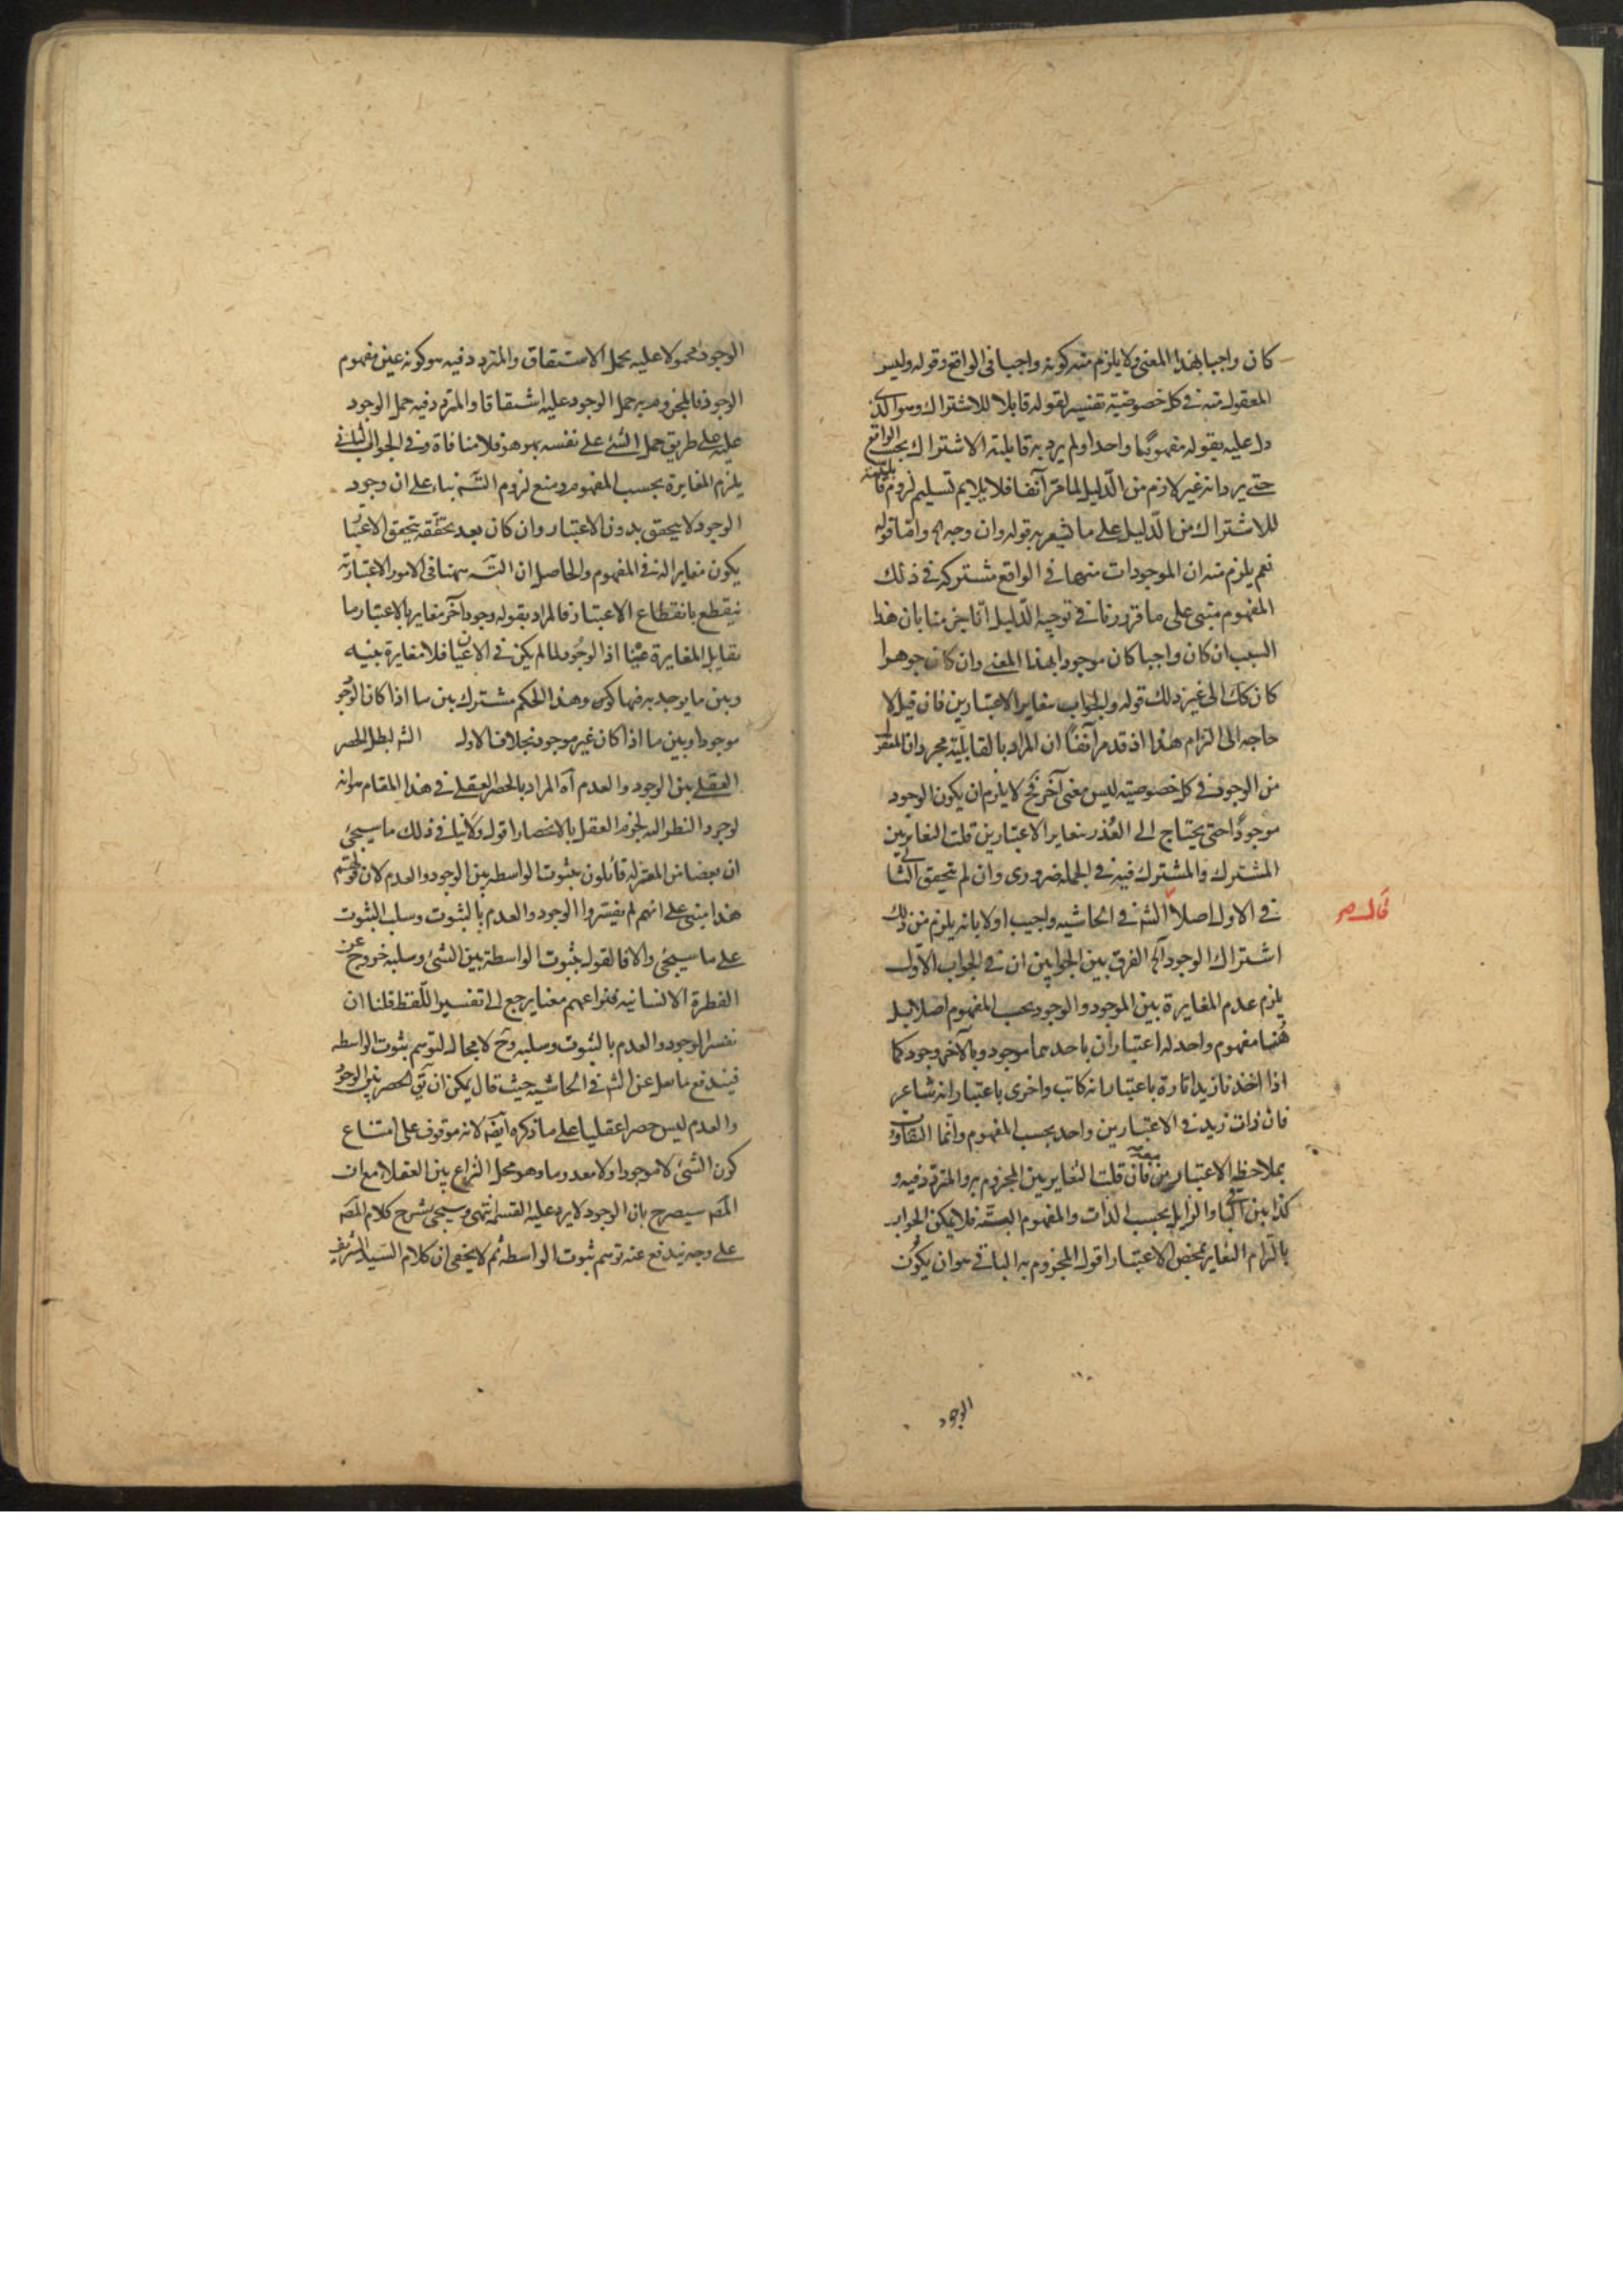 كان واجبا بهذا المعنى ولا يلزم منه كونه واجبا فى الواقع وقوله وليس
المعقول منه فى كل خصوصية تفسير لقوله قابلا للاشتراك وهو الذى
دل عليه بقوله مفهوما واحدا ولم يرد به قابلية الاشتراك بحسب الواقع
حتى يرد انه غير لازم من الدليل لما مر آنفا فلا يلايم تسليم لزوم قابليته
للاشتراك من الدليل على ما يشعر به قوله وان وجه اه واما قوله
نعم يلزم منه ان الموجودات متها فى الواقع مشتركة فى ذلك
المفهوم مبنى على ما قررنا فى توجيه الدليل انا جزمنا بان هذا
السبب ان كان واجبا كان موجودا بهذا المعنى وان كان جوهرا
كان كك الى غير ذلك قوله والجواب بتغاير الاعتبارين فان قيل لا
حاجة الى التزام هذا اذ قد مر آنفا ان المراد بالقابلية مجرد ان المعقول
من الوجود فى كل خصوصية ليس معنى آخر فح لا يلزم ان يكون الوجود
موجودا حتى يحتاج الى العذر بتغاير الاعتبارين قلت التغاير بين
المشترك والمشترك فيه فى الجملة ضرورى وان لم يتحقق الثانى
فى الاول اصلا الشه فى الحاشيه واجيب اولا بانه يلزم من ذلك
قال س
اشتراك الوجود آه الفرق بين الجوابين ان فى الجواب الاول
يلزم عدم المغايرة بين الموجود والوجود بحسب المفهوم اصلا بل
هنا مفهوم واحد له اعتباران باحدهما موجود وبالآخر وجود كما
اذا اخذنا زيدا تارة باعتبار انه كاتب واخرى باعتبار انه شاعر
فان ذات زيد فى الاعتبارين واحد بحسب المفهوم وانما التفاوت
بملاحظة الاعتبارين معه فان قلت التغاير بين المجزوم به والمتردد فيه و
كذا بين الباقى والزايل بحسب الذات والمفهوم البته فلا يمكن الجواب
بالتزام التغاير بمحض الاعتبار اقول المجزوم به الباقى هو ان يكون
الوجود
الوجود محمولا عليه بحمل الاشتقاق والمتردد فيه هو كونه عين مفهوم
الوجود فالمجزوم به حمل الوجود عليه اشتقاقا والمتردد فيه حمل الوجود
عليه على طريق حمل الشئ على نفسه بهو هو فلا منافاة وفى الجواب الثانى
يلزم المغايرة بحسب المفهوم ومنع لزوم التسه بناء على ان وجود
الوجود لا يتحقق بدون الاعتبار وان كان بعد تحققه بتحقق الاعتبار
يكون مغايرا له فى المفهوم والحاصل ان التسه ههنا فى الامور الاعتبارية
ينقطع بانقطاع الاعتبار فالمراد بقوله وجود آخر مغاير بالاعتبار ما
يقابل المغايرة عينا اذ الوجود لما لم يكن فى الاعيان فلا مغايرة بينه
وبين ما يوجد به فيها وهذا الحكم مشترك بين ما اذا كان الوجود
موجودا وبين ما اذا كان غير موجود بخلاف الاول الشه لبطل الحصر
العقلى بين الوجود والعدم آه المراد بالحصر العقلى فى هذا المقام هو انه
لو جرد النظر اليه لجزم العقل بالانحصار اقول ولا ينافى ذلك ما سيجئ
ان بعضا من المعتزله قائلون بثبوت الواسطه بين الوجود والعدم لان قولهم
هذا مبنى على انهم لم يفسروا الوجود والعدم بالثبوت وسلب الثبوت
على ما سيجئ والا فالقول بثبوت الواسطة بين الشئ وسلبه خروج عن
الفطرة الانسانيه فنزاعهم معنا يرجع الى تفسير اللفظ قلنا ان
نفسر الوجود والعدم بالثبوت وسلبه وح لا مجال لتوهم ثبوت الواسطه
فيندفع ما نقل عن الشه فى الحاشيه حيث قال يمكن ان يق الحصر بين الوجود
والعدم ليس حصرا عقليا على ما ذكره ايضه لانه موقوف على امتناع
كون الشئ لا موجودا ولا معدوما وهو محل النزاع بين العقلاء مع ان
المصه سيصرح بان الوجود لا يرد عليه القسمة انتهى وسيجئ شرح كلام المصه
على وجه يندفع عنه توهم ثبوت الواسطه ثم لا يخفى ان كلام السيد الشريف